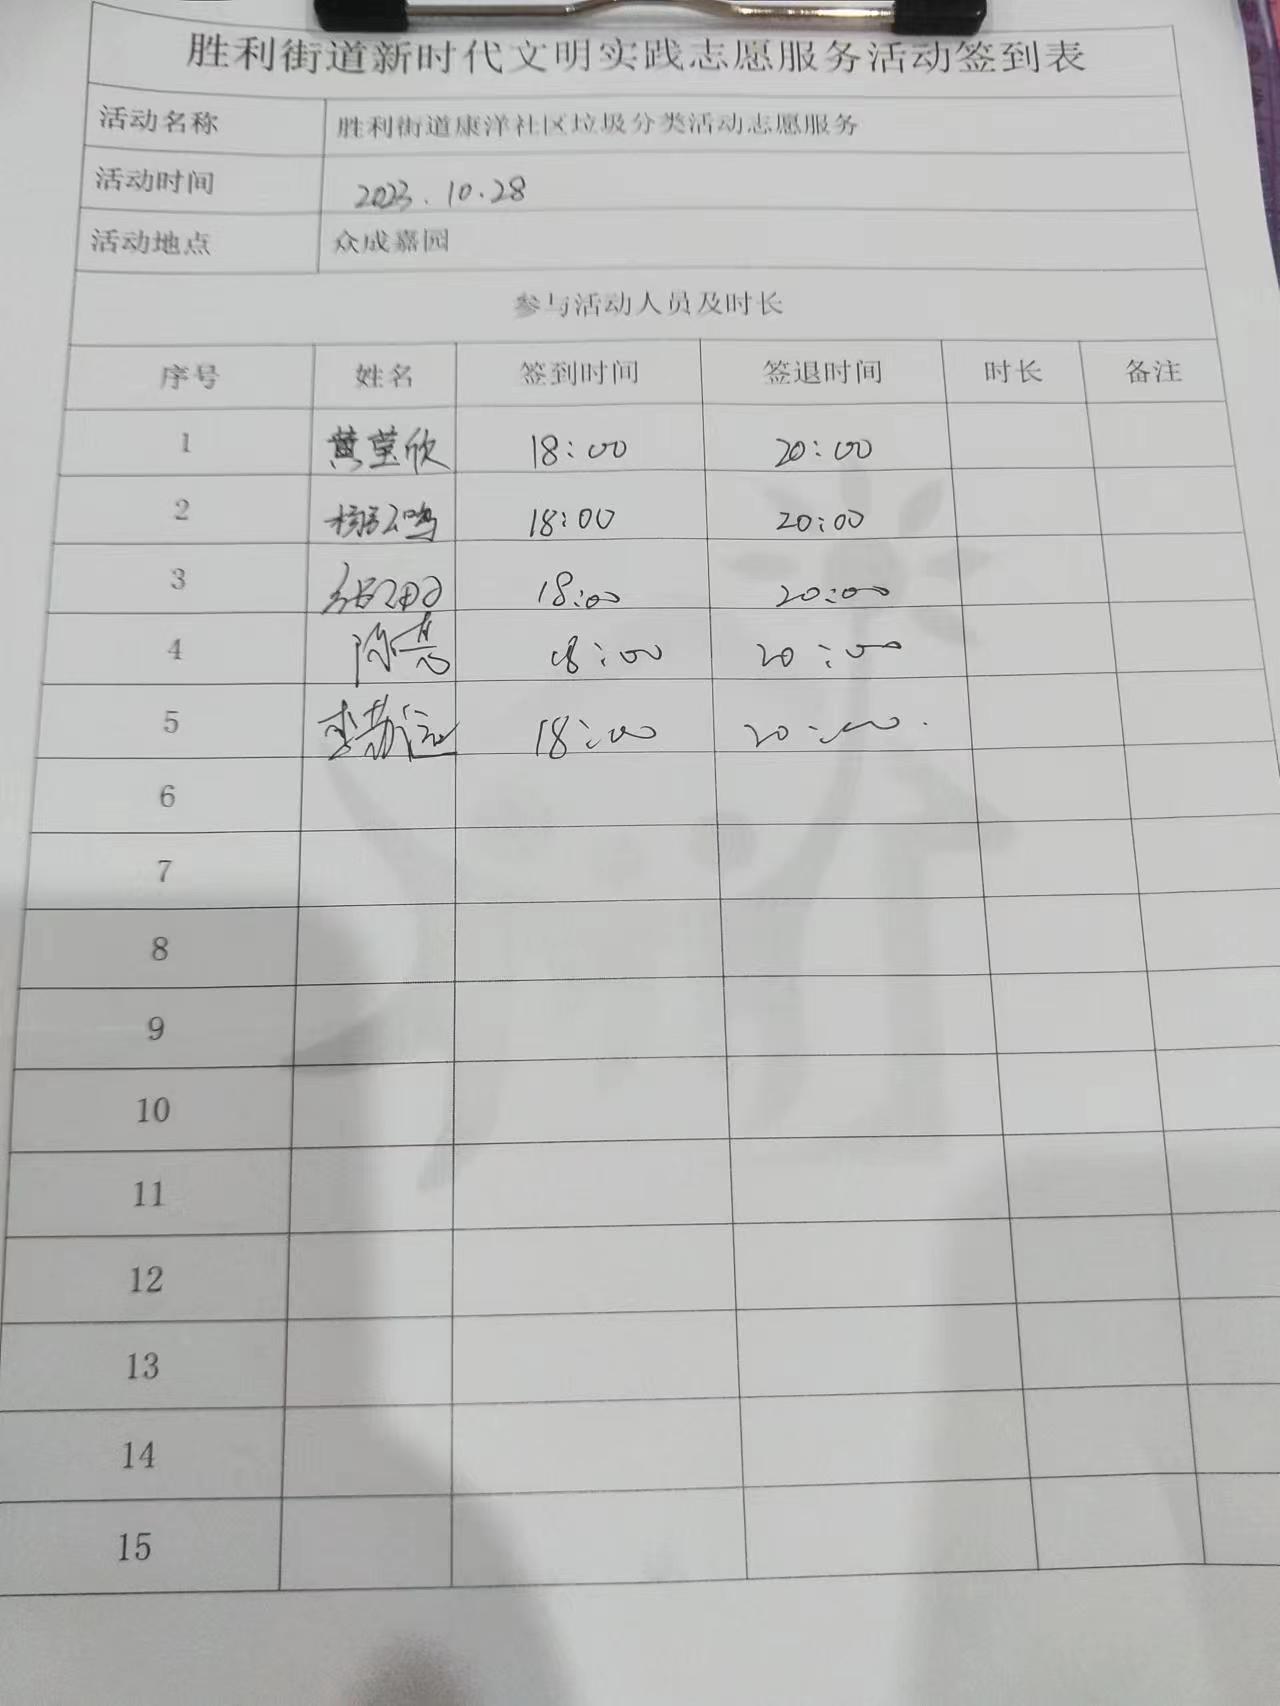 胜利街道新时代文明实践志愿服务活动签到表
活动名称 胜利街道康洋社区垃圾分类活动志愿服务
活动时间 2023.10.28
活动地点 众成嘉园
参与活动人员及时长
序号 姓名 签到时间 签退时间 时长 备注
1 黄莹欣 18:00 20:00
2 18:00 20:00
3 18:00 20:00
4 18:00 20:00
5 18:00 20:00
6
7
8
9
10
11
12
13
14
15